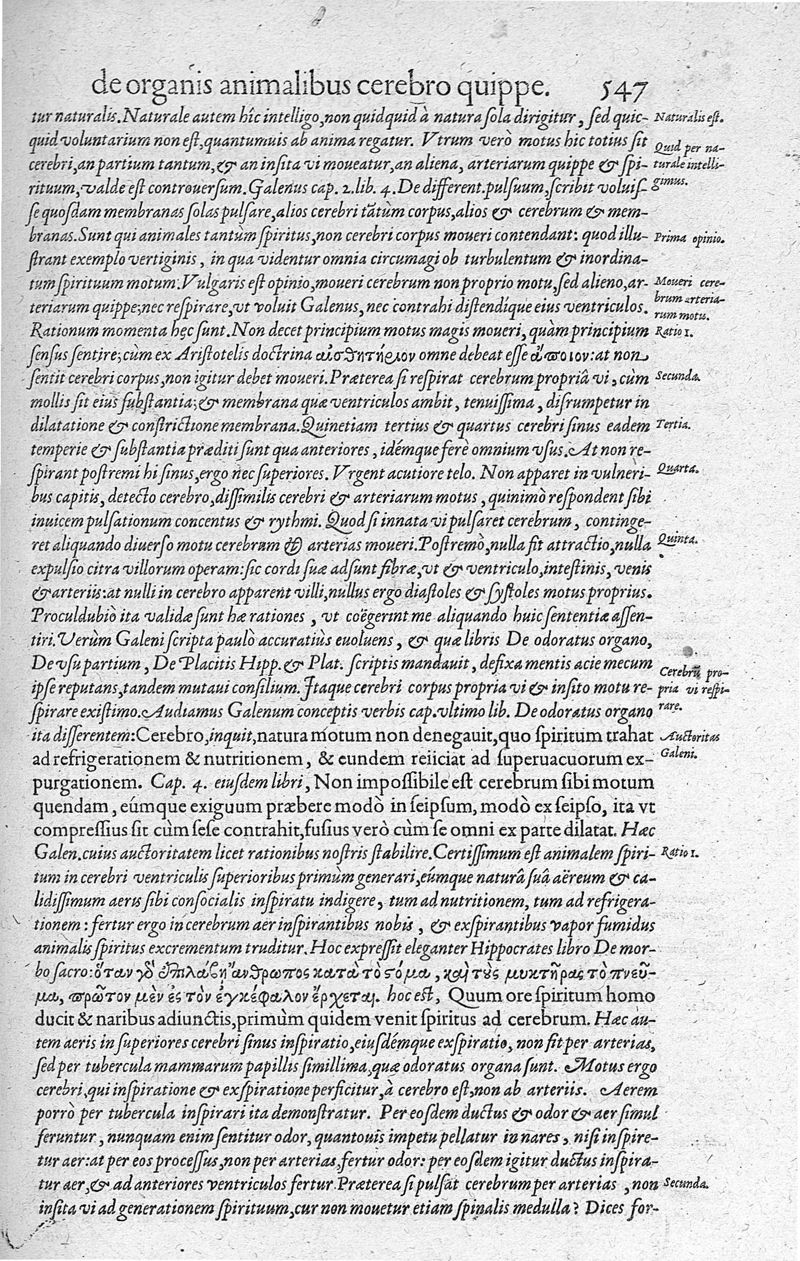 de organis animalibus cerebro quippe. 547
tur naturalis. Naturale autem hîc intelligo, non quidquid à natura sola dirigitur, sed quic-
Naturalis est.
quid voluntarium non est, quantumuis ab anima regatur. Vtrum verò motus hic totius sit
Quid per na-
cerebri, an partium tantum, & an insita vi moueatur, an aliena, arteriarum quippe & spi-
turale intelli-
rituum, valde est controuersum. Galenus cap. 2. lib. 4. De different. pulsuum, scribit voluis-
gimus.
se quosdam membranas solas pulsare, alios cerebri tãtùm corpus, alios & cerebrum & mem-
branas. Sunt qui animales tantùm spiritus, non cerebri corpus moueri contendant: quod illu-
Prima opinio.
strant exemplo vertiginis, in qua videntur omnia circumagi ob turbulentum & inordina-
tum spirituum motum. Vulgaris est opinio, moueri cerebrum non proprio motu, sed alieno, ar-
Moueri cere-
teriarum quippe; nec respirare, vt voluit Galenus, nec contrahi distendíque eius ventriculos.
brum arteria-
rum motu.
Rationum momenta hęc sunt. Non decet principium motus magis moueri, quàm principium
Ratio 1.
sensus sentire; cùm ex Aristotelis doctrina αἰσθητήριον omne debeat esse ἄποιον: at non
sentit cerebri corpus, non igitur debet moueri. Præterea si respirat cerebrum propriâ vi, cùm
Secunda.
mollis sit eius substantia; & membrana quæ ventriculos ambit, tenuissima, disrumpetur in
dilatatione & constrictione membrana. Quinetiam tertius & quartus cerebri sinus eadem
Tertia.
temperie & substantia præditi sunt qua anteriores, idémque ferè omnium vsus. At non re-
spirant postremi hi sinus, ergo nec superiores. Vrgent acutiore telo. Non apparet in vulneri-
Quarta.
bus capitis, detecto cerebro, dissimilis cerebri & arteriarum motus, quinimò respondent sibi
inuicem pulsationum concentus & rythmi. Quod si innata vi pulsaret cerebrum, continge-
ret aliquando diuerso motu cerebrum & arterias moueri. Postremò, nulla fit attractio, nulla
Quinta.
expulsio citra villorum operam: sic cordi suæ adsunt fibræ, vt & ventriculo, intestinis, venis
& arteriis: at nulli in cerebro apparent villi, nullus ergo diastoles & systoles motus proprius.
Proculdubiò ita validæ sunt hæ rationes, vt coëgerint me aliquando huic sententiæ assen-
tiri. Verùm Galeni scripta paulò accuratiùs euoluens, & quæ libris De odoratus organo,
De vsu partium, De Placitis Hipp. & Plat. scriptis mandauit, defixa mentis acie mecum
Cerebrũ pro-
ipse reputans, tandem mutaui consilium. Itaque cerebri corpus propria vi & insito motu re-
pria vi respi-
spirare existimo. Audiamus Galenum conceptis verbis cap. vltimo lib. De odoratus organo
rare.
ita differentem: Cerebro, inquit, natura motum non denegauit, quo spiritum trahat
Auctoritas
ad refrigerationem & nutritionem, & eundem reiiciat ad superuacuorum ex-
Galeni.
purgationem. Cap. 4. eiusdem libri, Non impossibile est cerebrum sibi motum
quendam, eúmque exiguum præbere modò in seipsum, modò ex seipso, ita vt
compressius sit cùm sese contrahit, fusius verò cùm se omni ex parte dilatat. Hæc
Galen. cuius auctoritatem licet rationibus nostris stabilire. Certissimum est animalem spiri-
Ratio 1.
tum in cerebri ventriculis superioribus primùm generari, eúmque naturâ suâ aëreum & ca-
lidissimum aeris sibi consocialis inspiratu indigere, tum ad nutritionem, tum ad refrigera-
tionem: fertur ergo in cerebrum aer inspirantibus nobis, & exspirantibus vapor fumidus
animalis spiritus excrementum truditur. Hoc expressit eleganter Hippocrates libro De mor-
bo sacro: ὅταν γὸ ἐπιλάβῃ ἄνθρωπος κατὰ τὸ στόμα, καὶ τοὺς μυκτῆρας τὸ πνεῦ-
μα, πρῶτον μὲν ἐς τὸν ἐγκέφαλον ἔρχεται. hoc est, Quum ore spiritum homo
ducit & naribus adiunctis, primum quidem venit spiritus ad cerebrum. Hæc au-
tem aeris in superiores cerebri sinus inspiratio, eiusdémque exspiratio, non fit per arterias,
sed per tubercula mammarum papillis simillima, quæ odoratus organa sunt. Motus ergo
cerebri, qui inspiratione & exspiratione perficitur, à cerebro est, non ab arteriis. Aerem
porrò per tubercula inspirari ita demonstratur. Per eosdem ductus & odor & aer simul
feruntur, nunquam enim sentitur odor, quantouis impetu pellatur in nares, nisi inspire-
tur aer: at per eos processus, non per arterias, fertur odor: per eosdem igitur ductus inspira-
tur aer, & ad anteriores ventriculos fertur. Præterea si pulsat cerebrum per arterias, non
Secunda.
insita vi ad generationem spirituum, cur non mouetur etiam spinalis medulla? Dices for-